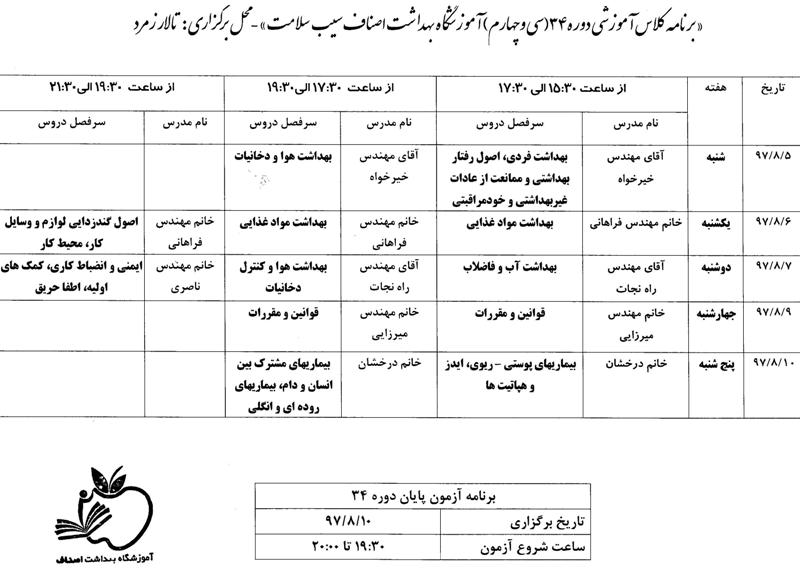 «برنامه کلاس آموزشی دوره ۳۴(سی و چهارم)آموزشگاه بهداشت اصناف سیب سلامت»-محل برگزاری: تالار زمرد
تاریخ هفته از ساعت ۱۵:۳۰ الی ۱۷:۳۰ از ساعت ۱۷:۳۰ الی ۱۹:۳۰ از ساعت ۱۹:۳۰ الی ۲۱:۳۰
نام مدرس سرفصل دروس نام مدرس سرفصل دروس نام مدرس سرفصل دروس
۹۷/۸/۵ شنبه آقای مهندس بهداشت فردی، اصول رفتار آقای مهندس بهداشت هوا و دخانیات
خیرخواه بهداشتی و ممانعت از عادات خیرخواه
غیربهداشتی و خودمراقبتی
۹۷/۸/۶ یکشنبه خانم مهندس فراهانی بهداشت مواد غذایی خانم مهندس بهداشت مواد غذایی خانم مهندس اصول گندزدایی لوازم و وسایل
فراهانی فراهانی کار، محیط کار
۹۷/۸/۷ دوشنبه آقای مهندس بهداشت آب و فاضلاب آقای مهندس بهداشت هوا و کنترل خانم مهندس ایمنی و انضباط کاری، کمک های
راه نجات راه نجات دخانیات ناصری اولیه، اطفا حریق
۹۷/۸/۹ چهارشنبه خانم مهندس قوانین و مقررات خانم مهندس قوانین و مقررات
میرزایی میرزایی
۹۷/۸/۱۰ پنج شنبه خانم درخشان بیماریهای پوستی – ریوی، ایدز خانم درخشان بیماریهای مشترک بین
و هپاتیت ها انسان و دام، بیماریهای
روده ای و انگلی
برنامه آزمون پایان دوره ۳۴
تاریخ برگزاری ۹۷/۸/۱۰
ساعت شروع آزمون ۱۹:۳۰ تا ۲۰:۰۰
آموزشگاه بهداشت اصناف